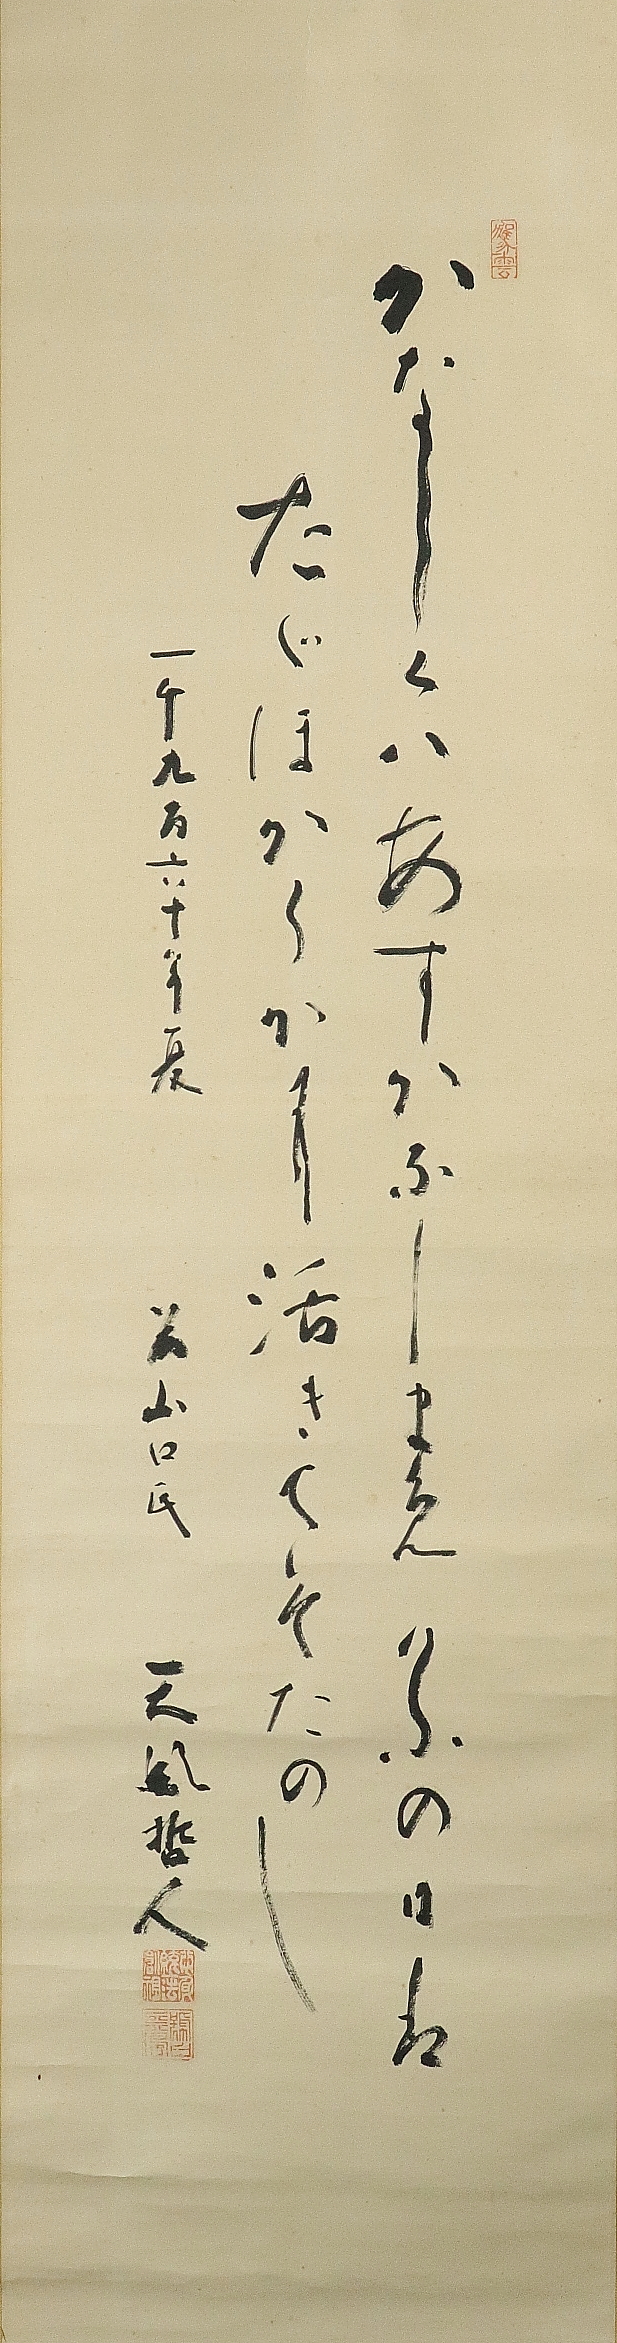 かなしくハあすかなしまめ けふの日を
たゞほからかに活きてそたのし
一千九百六十年夏 為山口氏 天風哲人